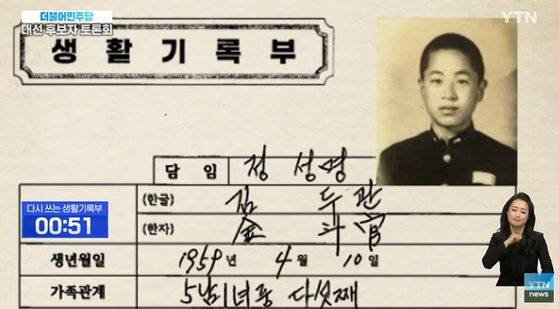 더불어민주당
대선 후보자 토론회
YTN
생활기록부
담임 정성명
(한글) 김두관
(한자) 金斗官
다시 쓰는 생활기록부
00:51
생년월일 1959년 4월 10일
가족관계 5남1녀 중 다섯째
YTN
news